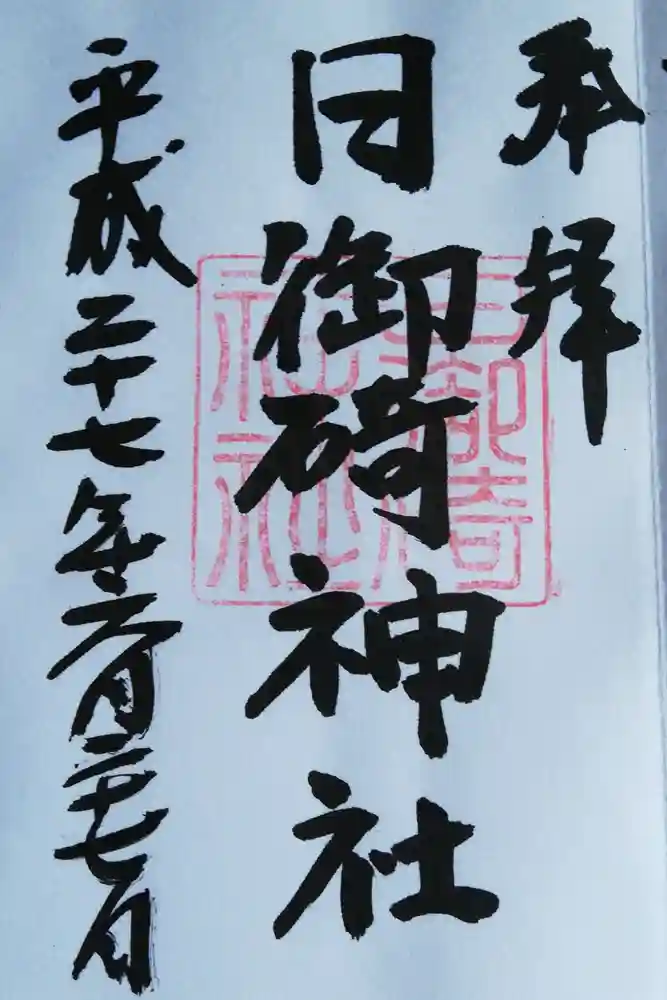 奉拝
日御碕神社
日御碕神社
平成二十七年六月二十七日